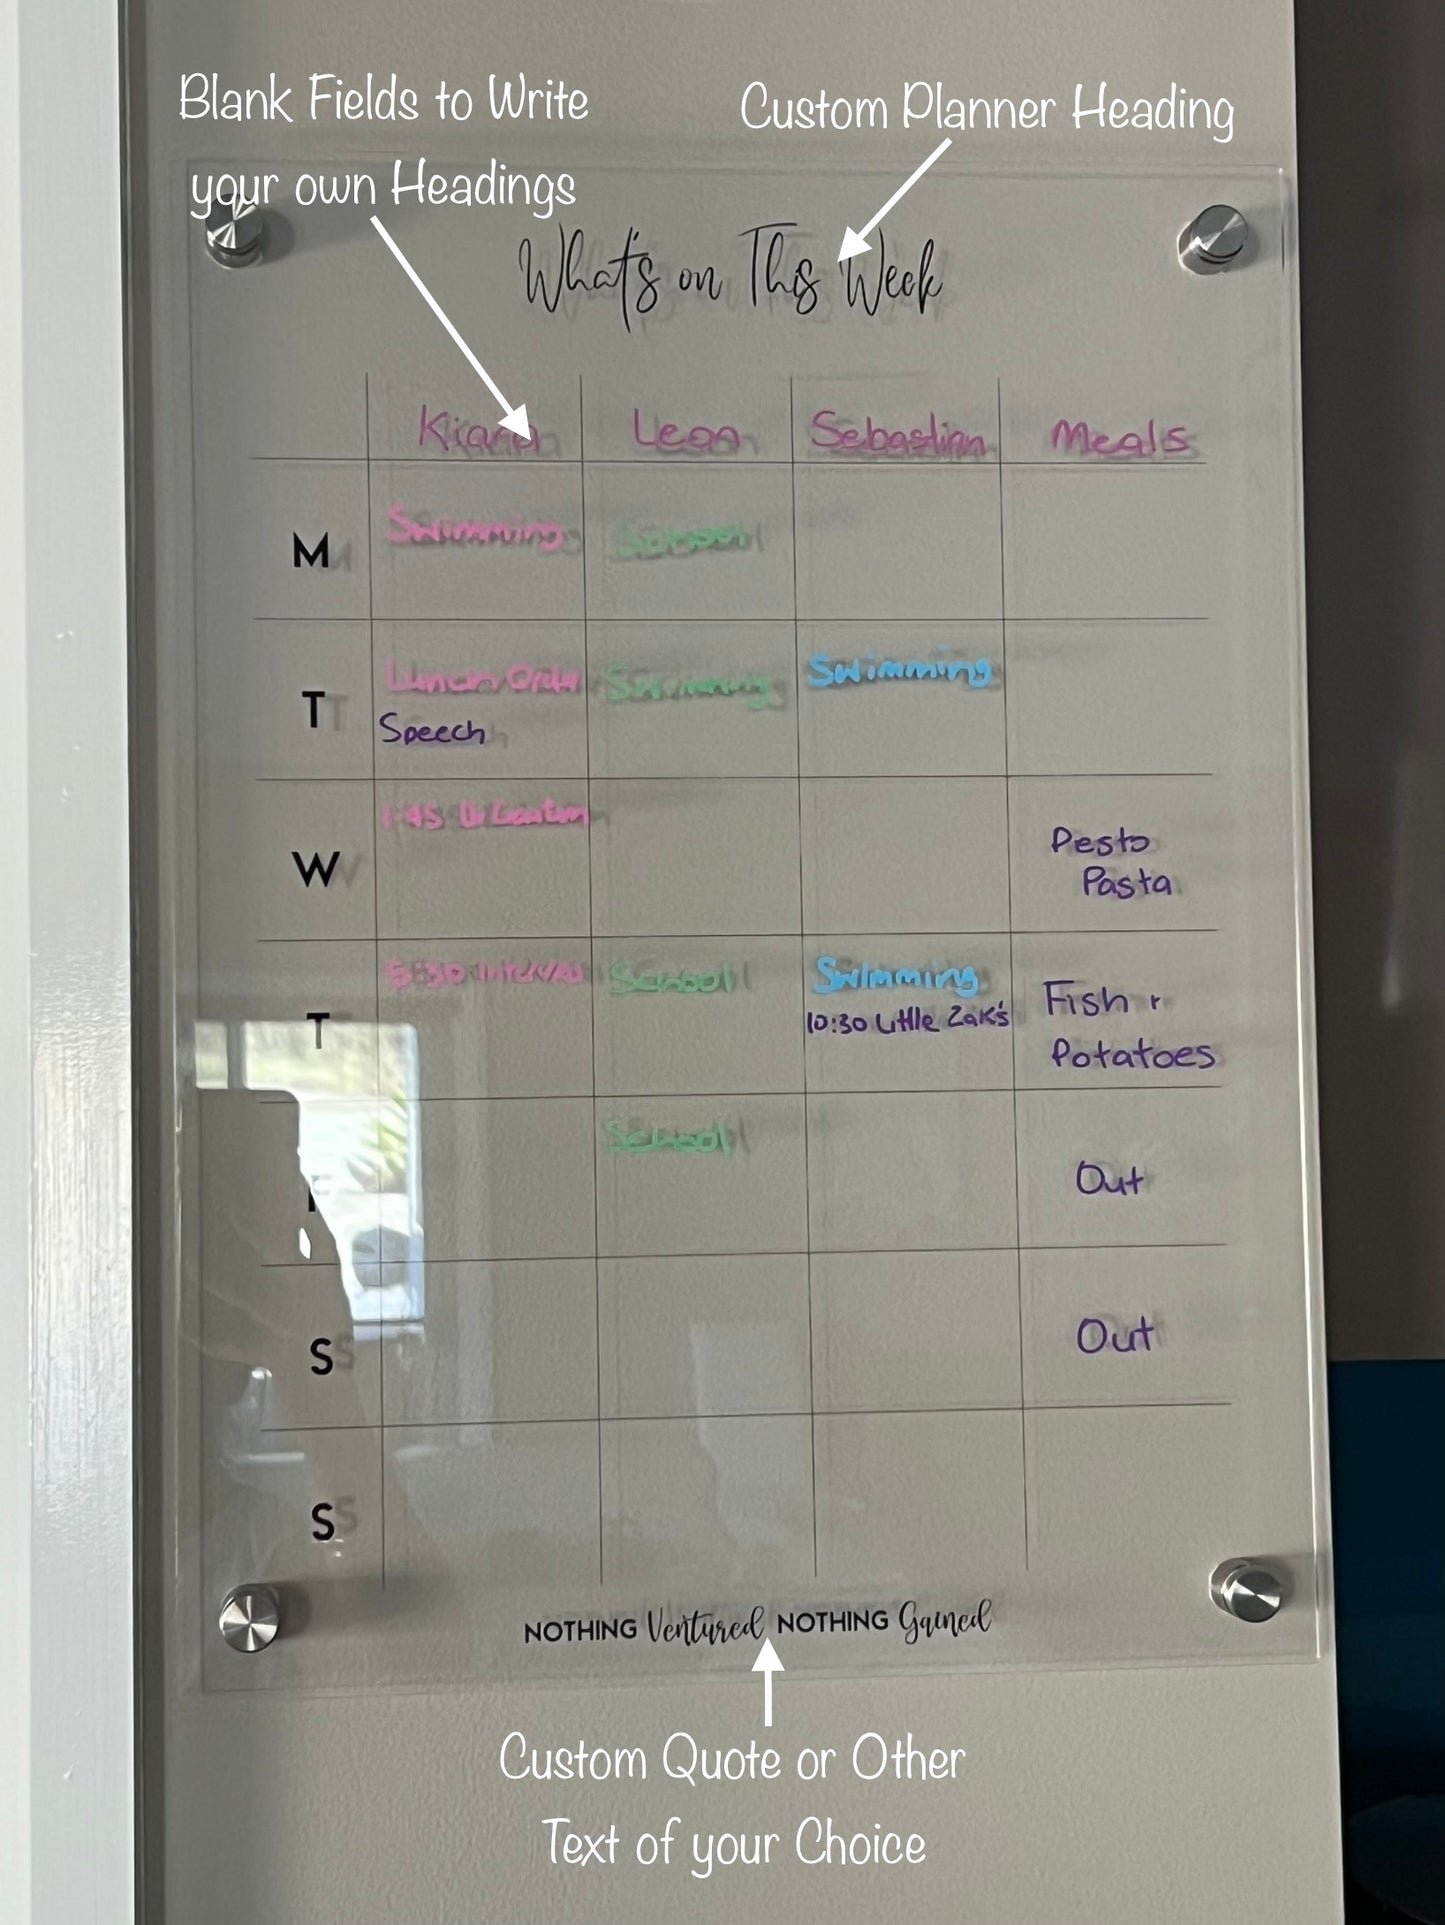 Blank Fields to Write
your own Headings
Custom Planner Heading
What's on This Week
Kiana Leon Sebastian Meals
M Swimming School
T Lunch Order Swimming Swimming
Speech
1:45
W Pesto
Pasta
5:30 School Swimming
T 10:30 Little Zak's Fish +
Potatoes
School
F Out
S Out
S
NOTHING Ventured NOTHING Gained
Custom Quote or Other
Text of your Choice